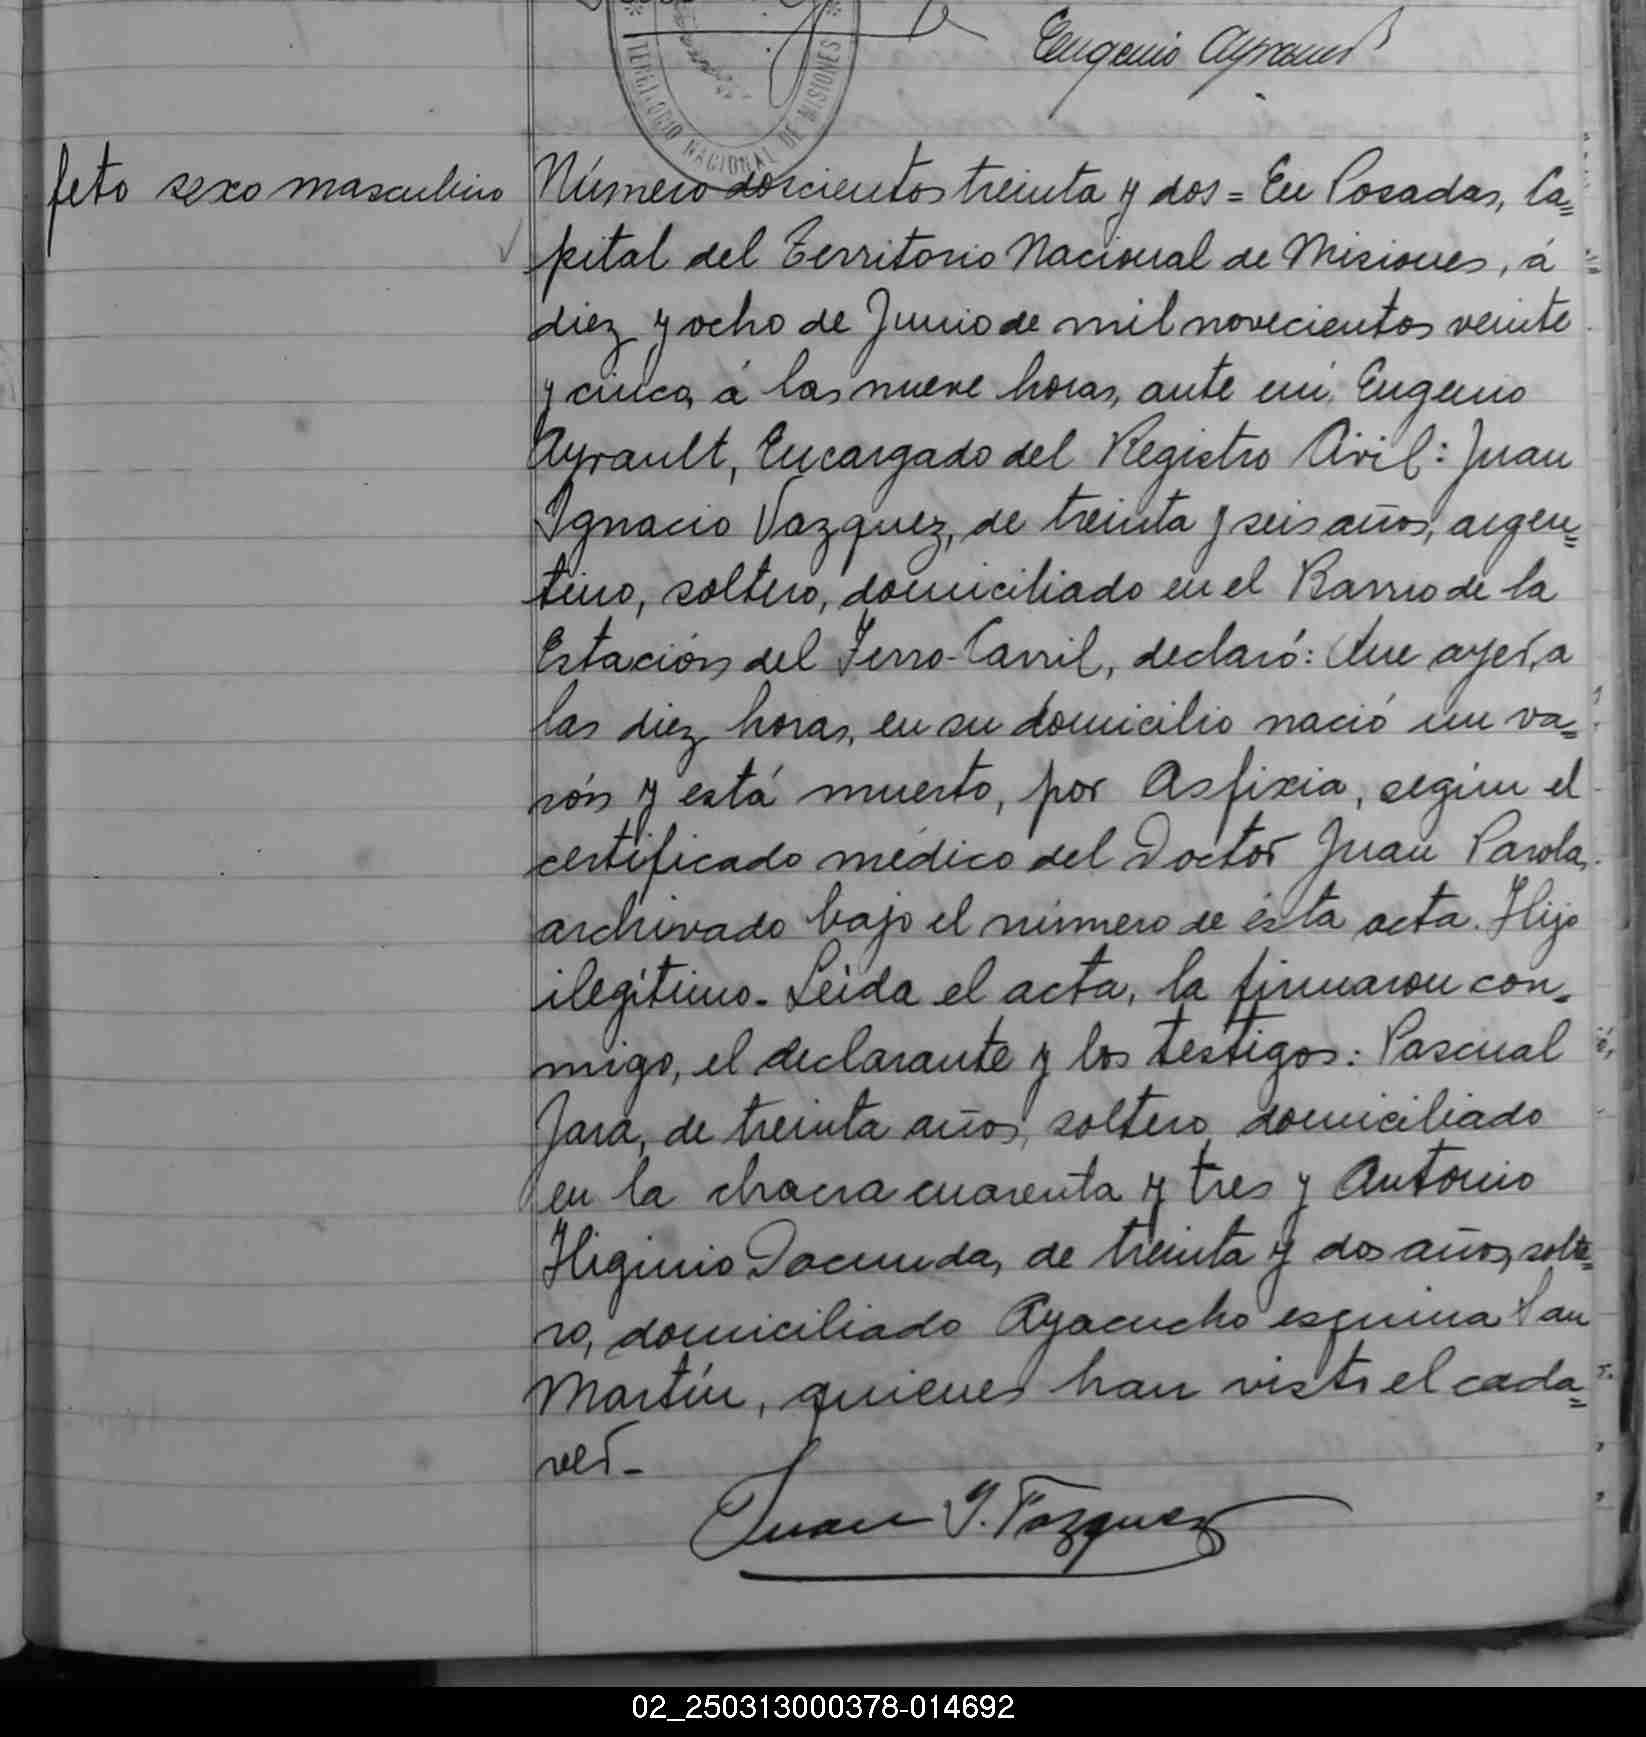 Eugenio Ayrault
TERRITORIO NACIONAL DE MISIONES
feto sexo masculino
Número doscientos treinta y dos = En Posadas, Ca=
pital del Territorio Nacional de Misiones, á
diez y ocho de Junio de mil novecientos veinte
y cinco, á las nueve horas, ante mí, Eugenio
Ayrault, Encargado del Registro Civil: Juan
Ygnacio Vazquez, de treinta y seis años, argen=
tino, soltero, domiciliado en el Barrio de la
Estación del Ferro-Carril, declaró: Que ayer, a
las diez horas, en su domicilio nació un va=
rón y está muerto, por Asfixia, según el
certificado médico del Doctor Juan Parola,
archivado bajo el número de ésta acta. Hijo
ilegítimo. Leida el acta, la firmaron con=
migo, el declarante y los testigos: Pascual
Jara, de treinta años, soltero, domiciliado
en la chacra cuarenta y tres y Antonio
Higinio Dacunda, de treinta y dos años, solte=
ro, domiciliado Ayacucho esquina San
Martín, quienes han visto el cada=
ver-
Juan Y. Vazquez
02_250313000378-014692